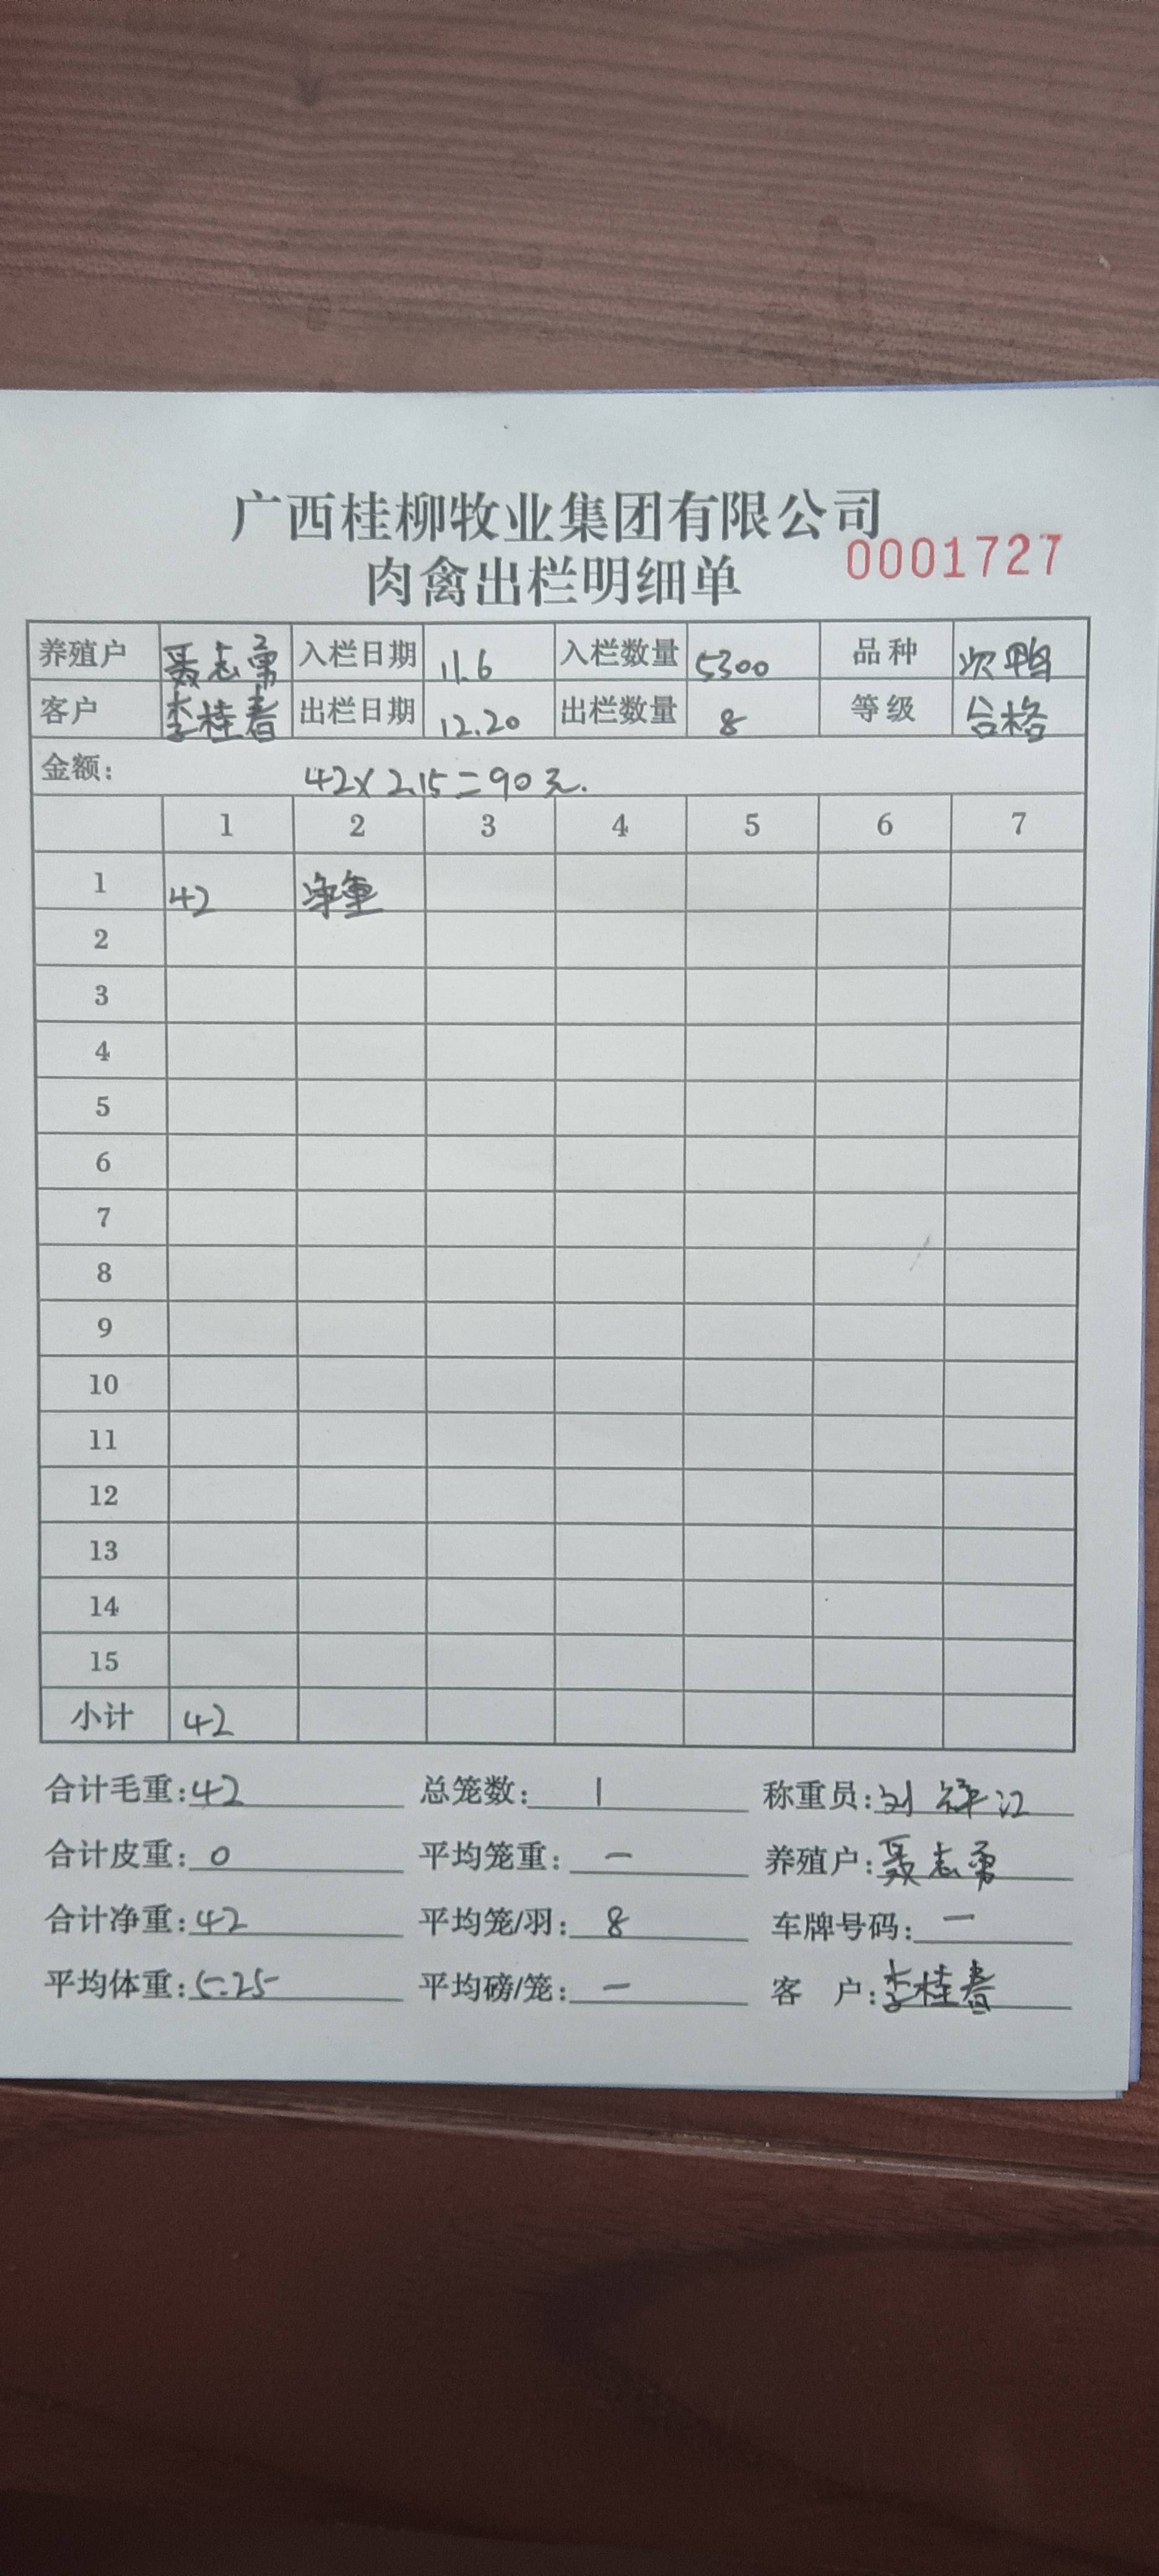 广西桂柳牧业集团有限公司
0001727
肉禽出栏明细单
养殖户 聂志勇 入栏日期 11.6 入栏数量 5300 品种 次鸭
客户 李桂春 出栏日期 12.20 出栏数量 8 等级 合格
金额: 42×2.15=90元.
1 2 3 4 5 6 7
1 42 净重
2
3
4
5
6
7
8
9
10
11
12
13
14
15
小计 42
合计毛重:42 总笼数: 1 称重员:刘 江
合计皮重: 0 平均笼重: 一 养殖户:聂志勇
合计净重:42 平均笼/羽: 8 车牌号码: 一
平均体重:5.25 平均磅/笼: 一 客 户:李桂春